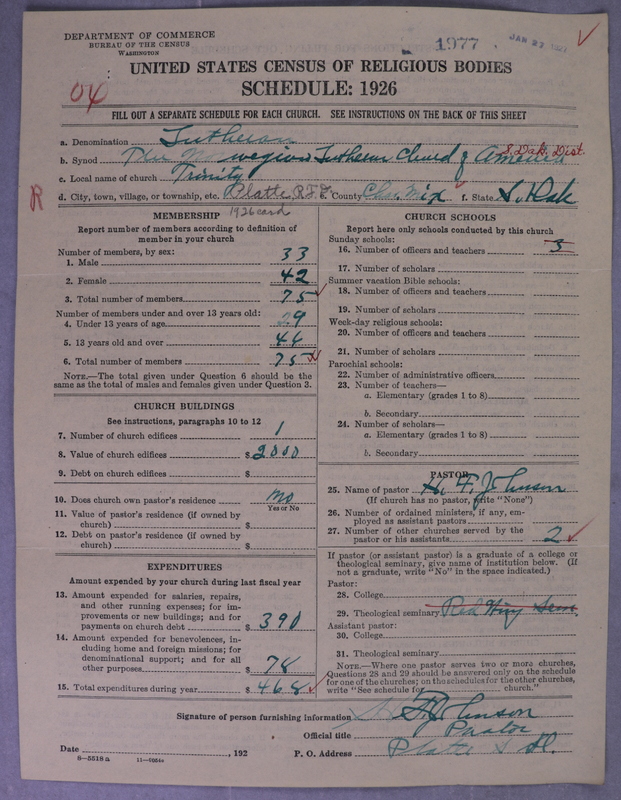 DEPARTMENT OF COMMERCE
BUREAU OF THE CENSUS
WASHINGTON
1977
JAN 27
UNITED STATES CENSUS OF RELIGIOUS BODIES
SCHEDULE: 1926
FILL OUT A SEPARATE SCHEDULE FOR EACH CHURCH. SEE INSTRUCTIONS ON THE BACK OF THIS SHEET
a. Denomination Lutheran
b. Synod The Norwegian Lutheran Church of America S. Dak. Dist.
c. Local name of church Trinity
R d. City, town, village, or township, etc. Platte R.F.D. e. County Chas. Mix f. State S. Dak
1926 card
MEMBERSHIP
Report number of members according to definition of
member in your church
Number of members, by sex:
1. Male 33
2. Female 42
3. Total number of members 75
Number of members under and over 13 years old:
4. Under 13 years of age 29
5. 13 years old and over 46
6. Total number of members 75
NOTE.—The total given under Question 6 should be the
same as the total of males and females given under Question 3.
CHURCH BUILDINGS
See instructions, paragraphs 10 to 12
7. Number of church edifices 1
8. Value of church edifices $ 2000
9. Debt on church edifices $
10. Does church own pastor's residence no
Yes or No
11. Value of pastor's residence (if owned by
church) $
12. Debt on pastor's residence (if owned by
church) $
EXPENDITURES
Amount expended by your church during last fiscal year
13. Amount expended for salaries, repairs,
and other running expenses; for im-
provements or new buildings; and for
payments on church debt $ 390
14. Amount expended for benevolences, in-
cluding home and foreign missions; for
denominational support; and for all
other purposes $ 78
15. Total expenditures during year $ 468
CHURCH SCHOOLS
Report here only schools conducted by this church
Sunday schools:
16. Number of officers and teachers 3
17. Number of scholars
Summer vacation Bible schools:
18. Number of officers and teachers
19. Number of scholars
Week-day religious schools:
20. Number of officers and teachers
21. Number of scholars
Parochial schools:
22. Number of administrative officers
23. Number of teachers—
a. Elementary (grades 1 to 8)
b. Secondary
24. Number of scholars—
a. Elementary (grades 1 to 8)
b. Secondary
PASTOR
25. Name of pastor H. F. Johnson
(If church has no pastor, write "None")
26. Number of ordained ministers, if any, em-
ployed as assistant pastors
27. Number of other churches served by the
pastor or his assistants 2
If pastor (or assistant pastor) is a graduate of a college or
theological seminary, give name of institution below. (If
not a graduate, write "No" in the space indicated.)
Pastor:
28. College
29. Theological seminary Red Wing Sem.
Assistant pastor:
30. College
31. Theological seminary
NOTE.—Where one pastor serves two or more churches,
Questions 28 and 29 should be answered only on the schedule
for one of the churches; on the schedules for the other churches,
write "See schedule for church."
Signature of person furnishing information H. F. Johnson
Official title Pastor
Date , 192 P. O. Address Platte S. D.
8—5518 a